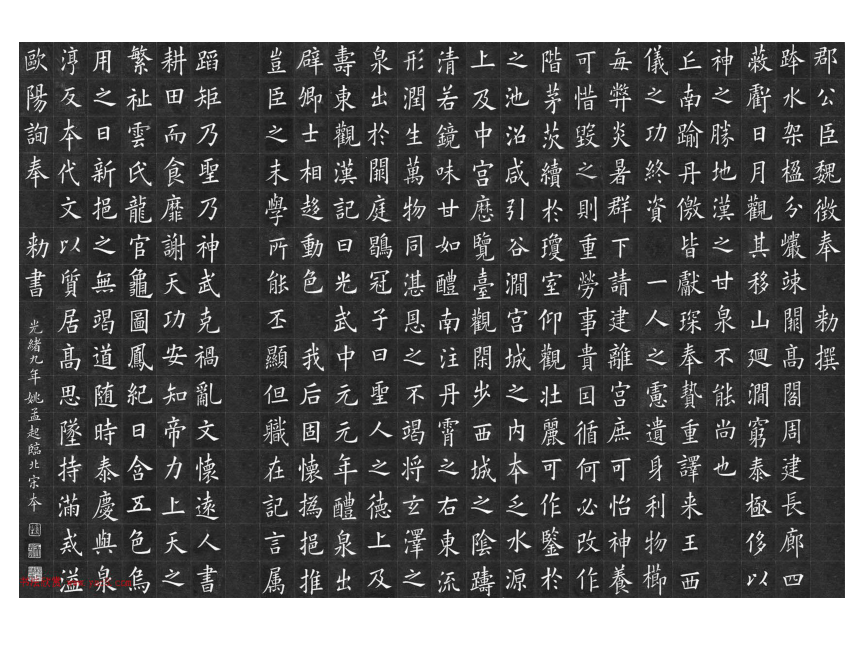 郡公臣魏徵奉 勑撰
跨水架楹分巗竦闕髙閣周建長廊四
蔽虧日月觀其移山迴澗窮泰極侈以
神之勝地漢之甘泉不能尚也
丘南踰丹儌皆獻琛奉贄重譯来王西
儀之功終資 一人之慮遺身利物櫛
每弊炎暑群下請建離宮庶可怡神養
可惜毀之則重勞事貴因循何必改作
階茅茨續於瓊室仰觀壯麗可作鑒於
之池沼咸引谷澗宮城之内本乏水源
上及中宮歷覽臺觀閑步西城之陰躊
清若鏡味甘如醴南注丹霄之右東流
形潤生萬物同湛恩之不竭将玄澤之
泉出於闕庭鶡冠子曰聖人之德上及
壽東觀漢記曰光武中元元年醴泉出
辟卿士相趍動色 我后固懷撝挹推
豈臣之末學所能丕顯但職在記言属
蹈矩乃聖乃神武克禍亂文懷遠人書
耕田而食靡謝天功安知帝力上天之
繁祉雲氏龍官龜圖鳳紀日含五色烏
用之日新挹之無竭道随時泰慶與泉
淳反本代文以質居髙思墜持滿戒溢
歐陽詢奉 勑書
光緒九年姚孟起臨北宋本